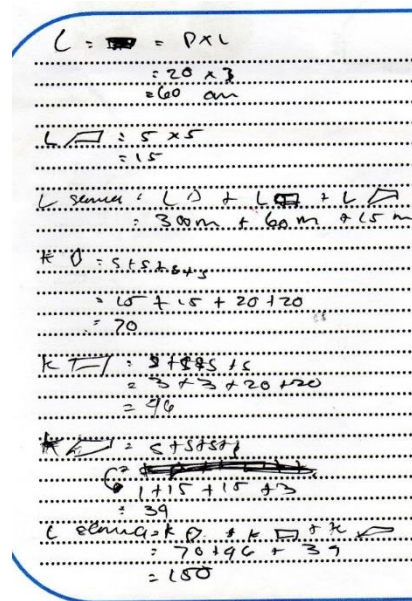 L = = P x L
= 20 x 3
= 60 cm
L ▱ = 5 x 5
= 15
L semua = L + L + L ▱
= 300 m + 60 m + 15 m
K = s+s+s+s
= 15 + 15 + 20 + 20
= 70
K = s+s+s+s
= 3 + 3 + 20 + 20
= 46
K ▱ = s+s+s+s
1 + 15 + 15 + 3
= 39
semua = K + K + K ▱
= 70 + 46 + 39
= 150